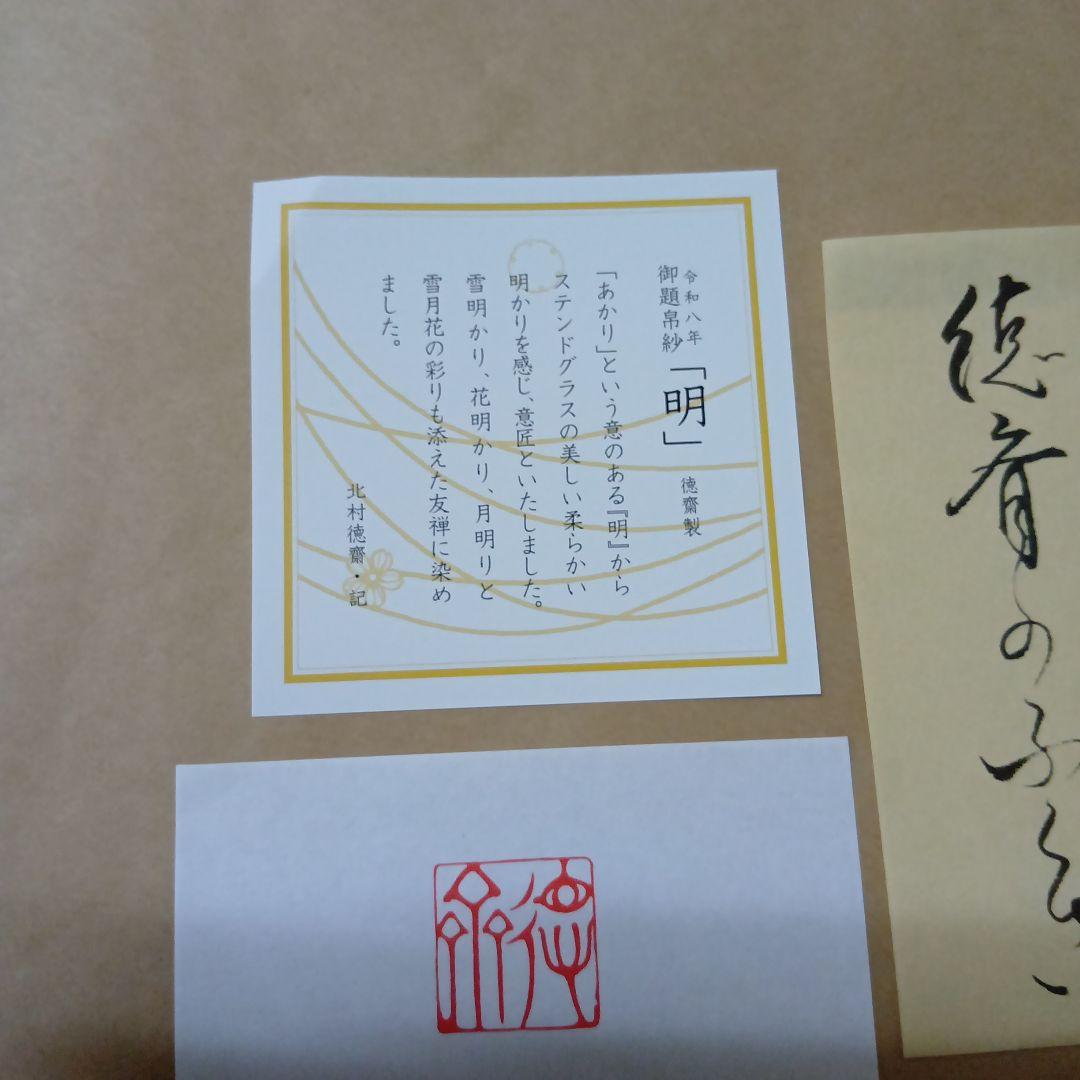 令和八年
御題帛紗「明」 徳齋製
「あかり」という意のある『明』から
ステンドグラスの美しい柔らかい
明かりを感じ、意匠といたしました。
雪明かり、花明かり、月明りと
雪月花の彩りも添えた友禅に染め
ました。
北村徳齋・記
徳斎のふくさ
徳齋